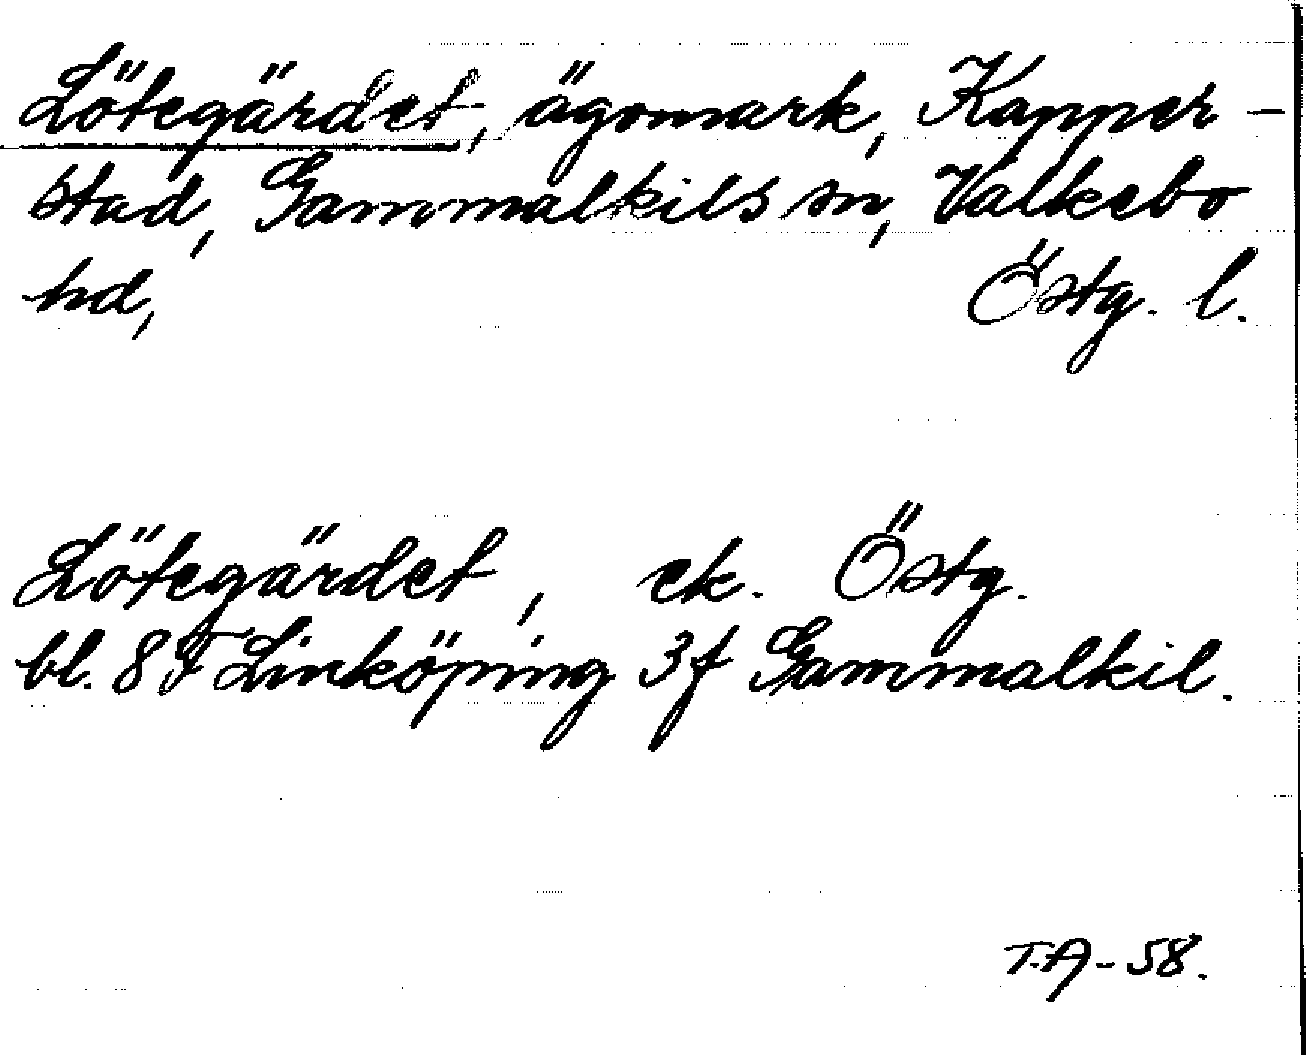 Lötegärdet, ägomark, Kapper-
stad, Gammalkils sn, Valkebo
hd, Östg. l.
Lötegärdet, ek. Östg.
bl. 8 F Linköping 3f Gammalkil.
T.A-58.